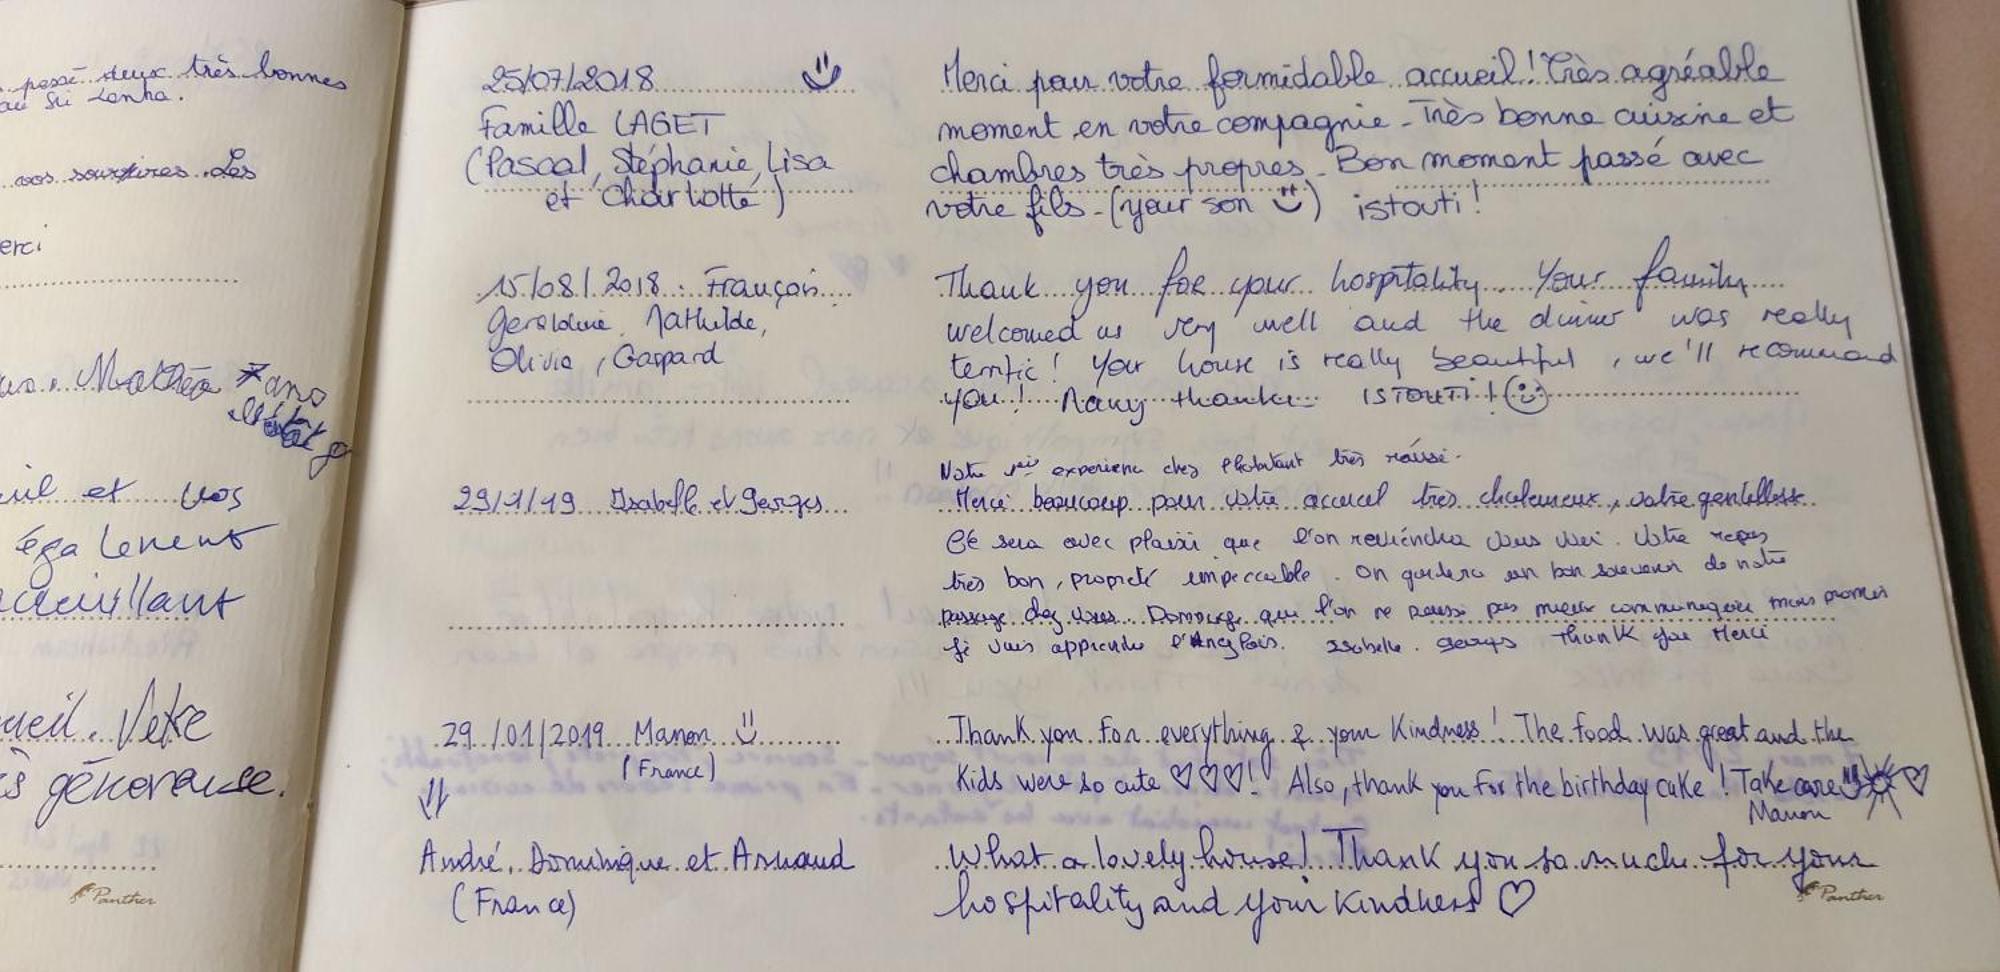 passé deux très bonnes
au Sri Lanka.
vos sourires. Les
erci
Mathéa 7 ans
et vos
également
accueillant
ueil. Votre
s génereuse.
Panther
25/07/2018
Famille LAGET
(Pascal, Stéphanie, Lisa
et Charlotte)
Merci pour votre formidable accueil! Très agréable
moment en votre compagnie - Très bonne cuisine et
chambres très propres - Bon moment passé avec
votre fils - (your son) istouti!
15/08/2018 : François
Geraldine, Mathilde,
Olivia, Gaspard
Thank you for your hospitality. Your family
welcomed us very well and the dinner was really
terrific! Your house is really beautiful, we'll recommand
you! Many thanks ISTOUTI!
29/1/19 Isabelle et Georges
Notre 1ère experience chez l'habitant très réussie.
Merci beaucoup pour votre accueil très chaleureux, votre gentillesse
Ce sera avec plaisir que l'on reviendra vous voir. Votre repas
très bon, propreté impeccable. On gardera un bon souvenir de notre
passage chez vous. Dommage que l'on ne puisse pas mieux communiquer mais promis
je vais apprendre l'Anglais. Isabelle. Georges Thank you Merci
29/01/2019 Manon
(France)
Thank you for everything & your Kindness! The food was great and the
Kids were so cute ♡♡♡! Also, thank you for the birthday cake! Take care ♡
Manon
André, Dominique et Arnaud
(France)
What a lovely house! Thank you so much for your
hospitality and your Kindness ♡
Panther